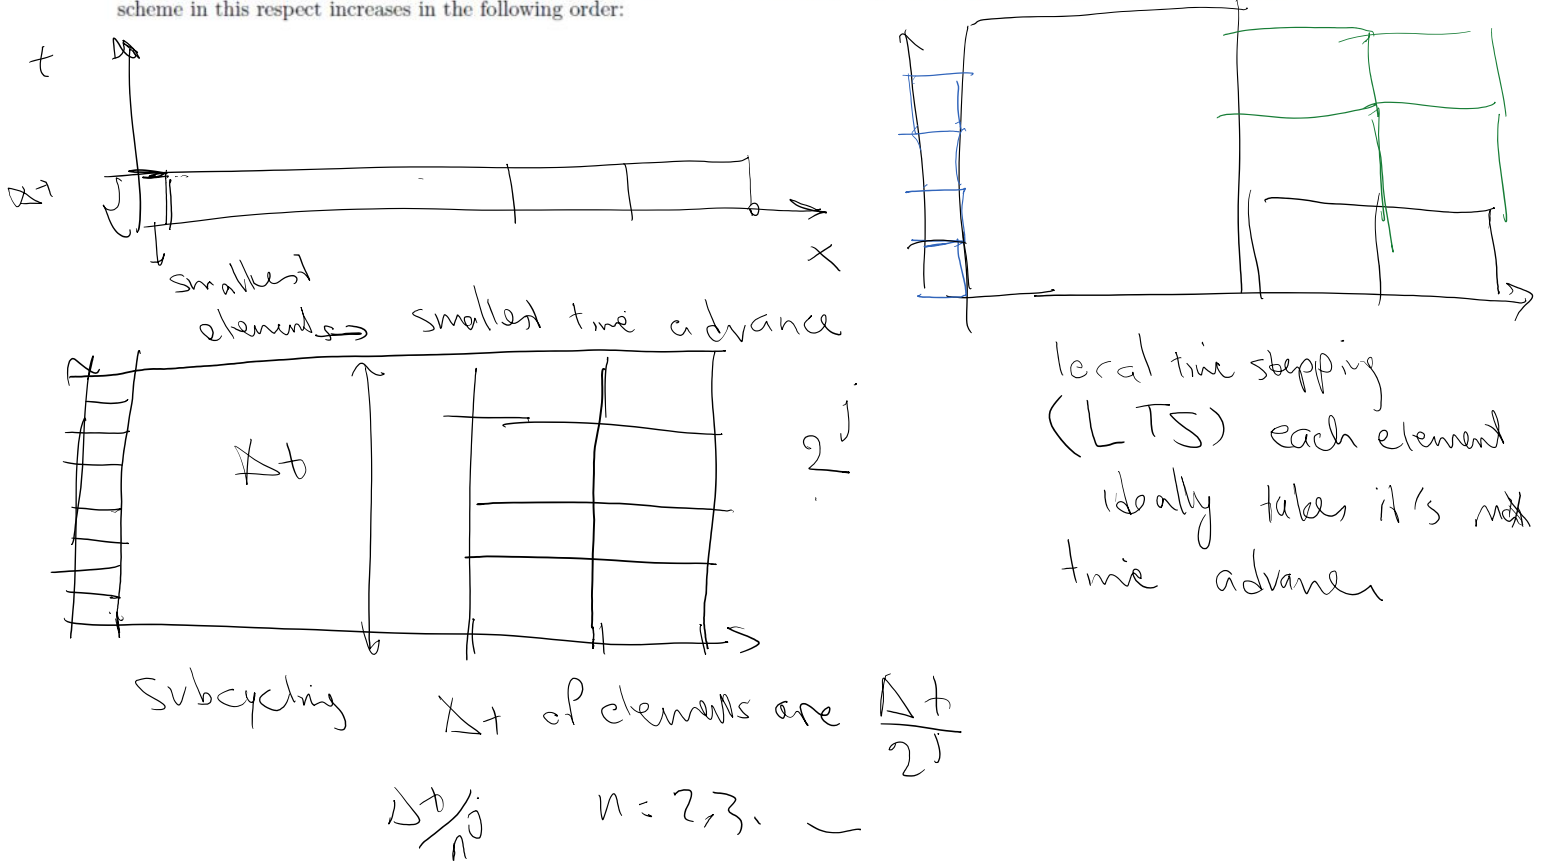 scheme in this respect increases in the following order:
t
Δt
x
smallest
elements → smallest time advance
Δt
2^j
Subcycling Δt of elements are Δt/2^j
Δt/n^j n = 2, 3, —
local time stepping
(LTS) each element
ideally takes it's max
time advance